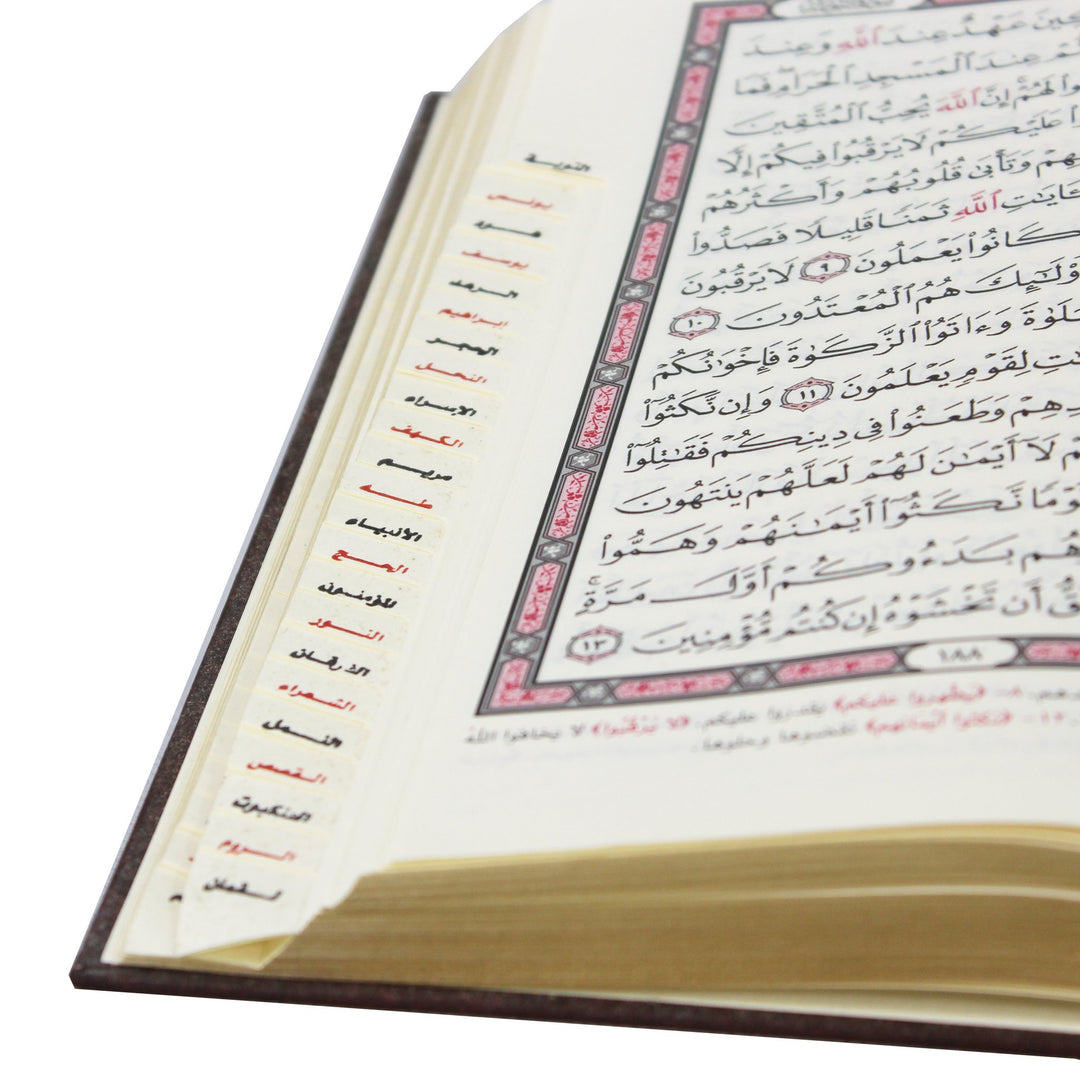 عَهْدٌ عِندَ ٱللَّهِ وَعِندَ
عِندَ ٱلْمَسْجِدِ ٱلْحَرَامِ فَمَا
لَهُمْ إِنَّ ٱللَّهَ يُحِبُّ ٱلْمُتَّقِينَ
عَلَيْكُمْ لَا يَرْقُبُوا۟ فِيكُمْ إِلًّا
وَتَأْبَىٰ قُلُوبُهُمْ وَأَكْثَرُهُمْ
ٱللَّهِ ثَمَنًا قَلِيلًا فَصَدُّوا۟
كَانُوا۟ يَعْمَلُونَ ٩ لَا يَرْقُبُونَ
وَأُو۟لَٰٓئِكَ هُمُ ٱلْمُعْتَدُونَ ١٠
وَءَاتَوُا۟ ٱلزَّكَوٰةَ فَإِخْوَٰنُكُمْ
لِقَوْمٍ يَعْلَمُونَ ١١ وَإِن نَّكَثُوٓا۟
وَطَعَنُوا۟ فِى دِينِكُمْ فَقَٰتِلُوٓا۟
لَآ أَيْمَٰنَ لَهُمْ لَعَلَّهُمْ يَنتَهُونَ
قَوْمًا نَّكَثُوٓا۟ أَيْمَٰنَهُمْ وَهَمُّوا۟
بَدَءُوكُمْ أَوَّلَ مَرَّةٍ
أَن تَخْشَوْهُ إِن كُنتُم مُّؤْمِنِينَ ١٣
١٨٨
٨- ﴿يَظْهَرُوا عليكم﴾ يقدروا عليكم. ﴿لا يَرْقُبُوا﴾ لا يخافوا الله
١٢- ﴿نكثوا أيمانهم﴾ نقضوها وحلوها.
التوبة
يونس
هود
يوسف
الرعد
ابراهيم
الحجر
النحل
الاسراء
الكهف
مريم
طه
الأنبياء
الحج
المؤمنون
النور
الفرقان
الشعراء
النمل
القصص
العنكبوت
الروم
لقمان